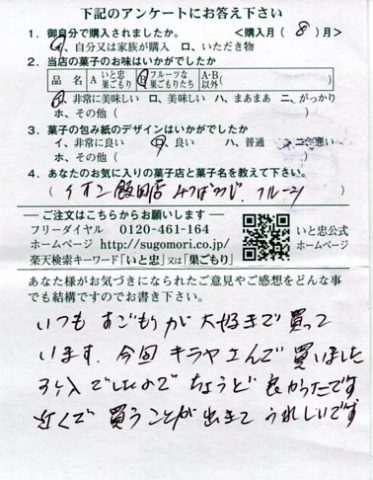 下記のアンケートにお答え下さい
1. 御自分で購入されましたか。 <購入月( 8 )月>
イ、自分又は家族が購入 ロ、いただき物
2. 当店の菓子のお味はいかがでしたか
品 名 A いと忠 巣ごもり B フルーツな 巣ごもりたち A・B 以外( )
イ、非常に美味しい ロ、美味しい ハ、まあまあ ニ、がっかり
ホ、その他 ( )
3. 菓子の包み紙のデザインはいかがでしたか
イ、非常に良い ロ 良い ハ、普通 ニ、悪い
ホ、その他 ( )
4. あなたのお気に入りの菓子店と菓子名を教えて下さい。
( イオン飯田店 みつばつつじ、フルーツ )
― ご注文はこちらからお願いします ―
フリーダイヤル 0120-461-164
ホームページ http://sugomori.co.jp/
楽天検索キーワード「いと忠」又は「巣ごもり」
いと忠公式
ホームページ
あなた様がお気づきになられたご意見やご感想をどんな事
でも結構ですのでお書き下さい。
いつも すごもりが 大好きで 買って
います。今回 キラヤさんで 買いました
3ヶ入 でしたので ちょうど 良かったです
近くで 買うことが 出きて うれしいです